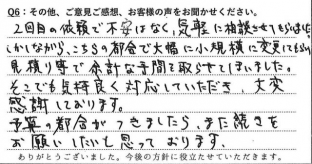 Q6：その他、ご意見ご感想、お客様の声をお聞かせください。
2回目の依頼で不安はなく、気軽に相談させてもらいました。
しかしながら、こちらの都合で大幅に小規模に変更してもらい
見積り等で余計な手間を取らせてしまいました。
そこでも気持良く対応していただき、大変
感謝しております。
予算の都合がつきましたら、また続きを
お願いしたいと思っております。
ありがとうございました。今後の方針に役立たせていただきます。